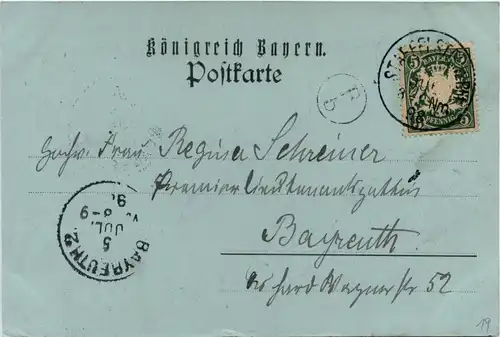 Königreich Bayern.
Postkarte
STAFFELSTEIN
5 BAYERN 5
PFENNIG
Frau Regina Schreiner
Premierlieutenantsgattin
Bayreuth
Richard Wagnerstr 52
BAYREUTH 2
5
JUL.
8-9
19